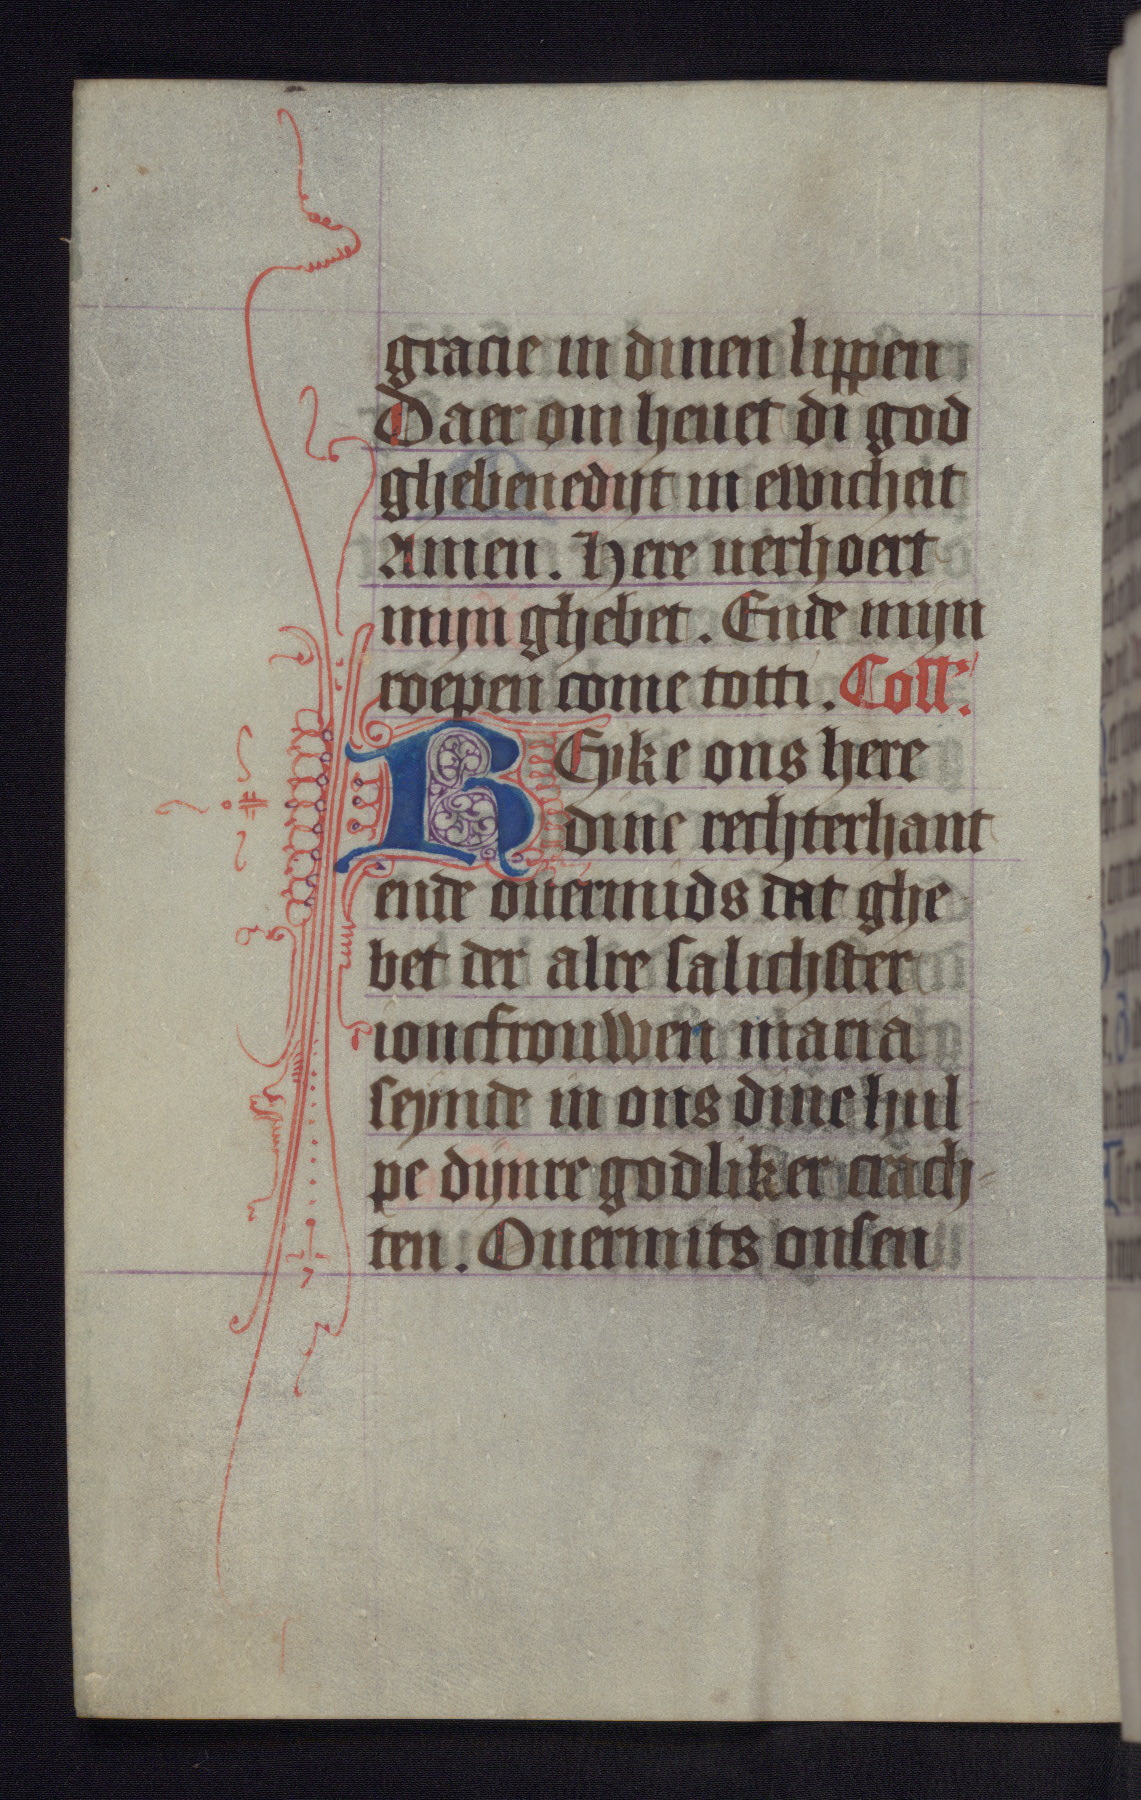 gracie in dinen lippen
Daer om heuet di god
ghebenedijt in ewicheit
Amen. Here uerhoert
mijn ghebet. Ende mijn
roepen come totti. Coll'.
REyke ons here
dine rechterhant
ende ouermids dat ghe
bet der alre salichster
ioncfrouwen maria
seynde in ons dine hul
pe dijnre godliker crach-
ten. Ouermits onsen